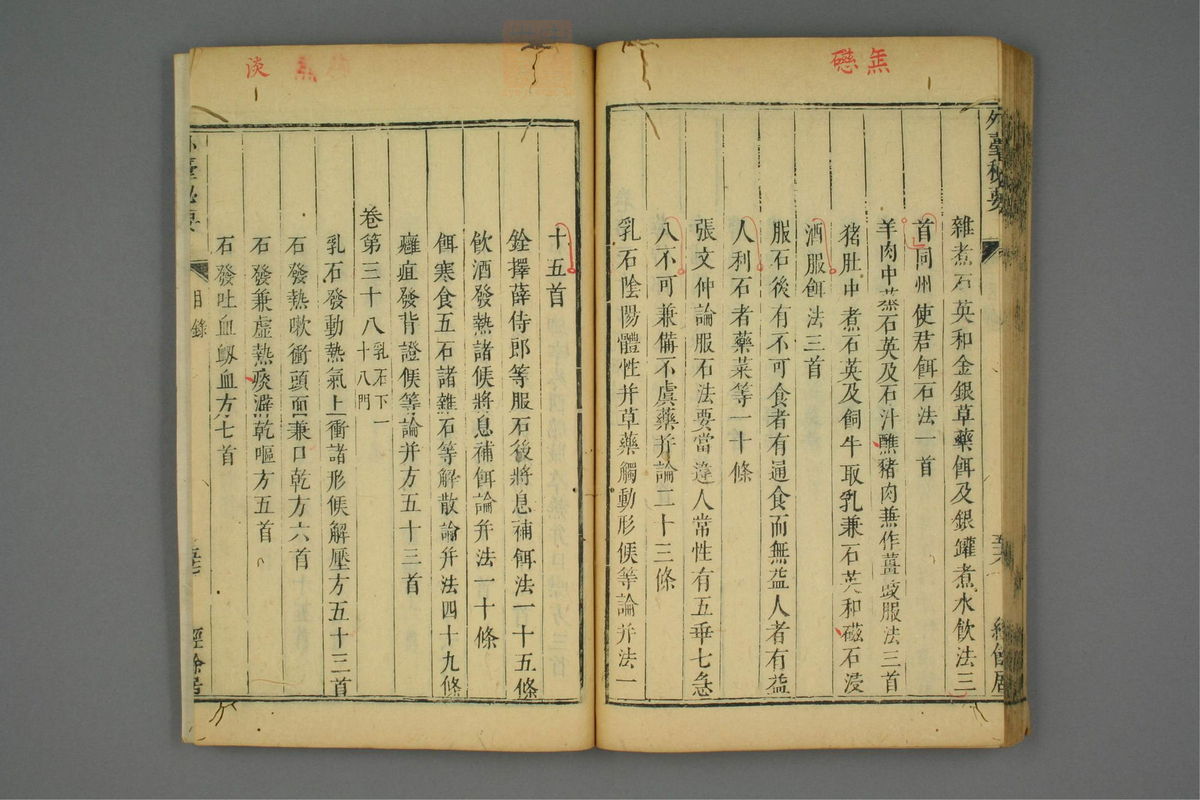 𤇆
懋
外臺秘要
雜煮石英和金銀草藥餌及銀罐煮水飲法三
首
同州使君餌石法一首
羊肉中蒸石英及石汁醮豬肉兼作薑豉服法三首
豬肚中煮石英及飼牛取乳兼石英和磁石浸
酒服餌法三首
服石後有不可食者有通食而無益人者有益
人利石者藥菜等一十條
張文仲論服石法要當違人常性有五乖七急
八不可兼備不虞藥并論二十三條
乳石陰陽體性并草藥觸動形候等論并法一
十五首
銓擇薛侍郎等服石後將息補餌法一十五條
飲酒發熱諸候將息補餌論并法一十條
餌寒食五石諸雜石等解散論并法四十九條
癰疽發背證候等論并方五十三首
卷第三十八乳石下一十八門
乳石發動熱氣上衝諸形候解壓方五十三首
石發熱嗽衝頭面兼口乾方六首
石發兼虛熱痰澼乾嘔方五首
石發吐血衂血方七首
淡
外臺秘要
目錄
經餘居